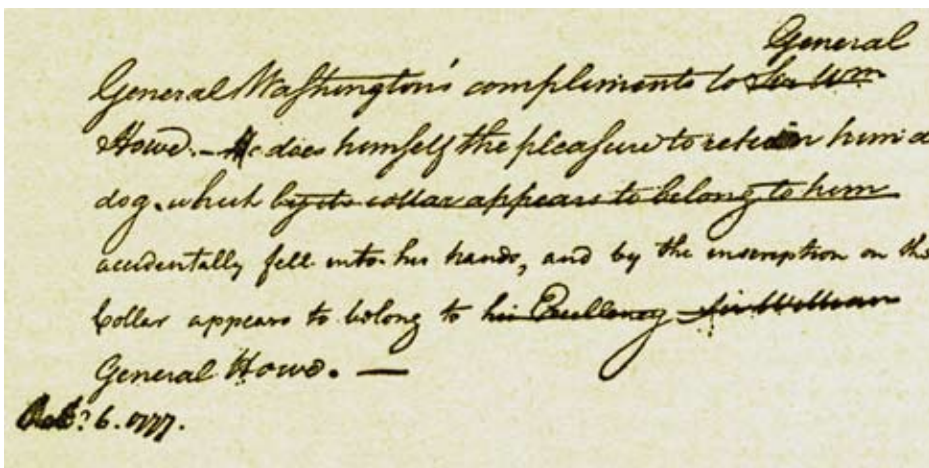 General
General Washington's compliments to Sir Wm
Howe. – He does himself the pleasure to return him a
dog, which by its collar appears to belong to him
accidentally fell into his hands, and by the inscription on the
Collar appears to belong to his Excellency Sir William
General Howe. —
Octr. 6. 1777.